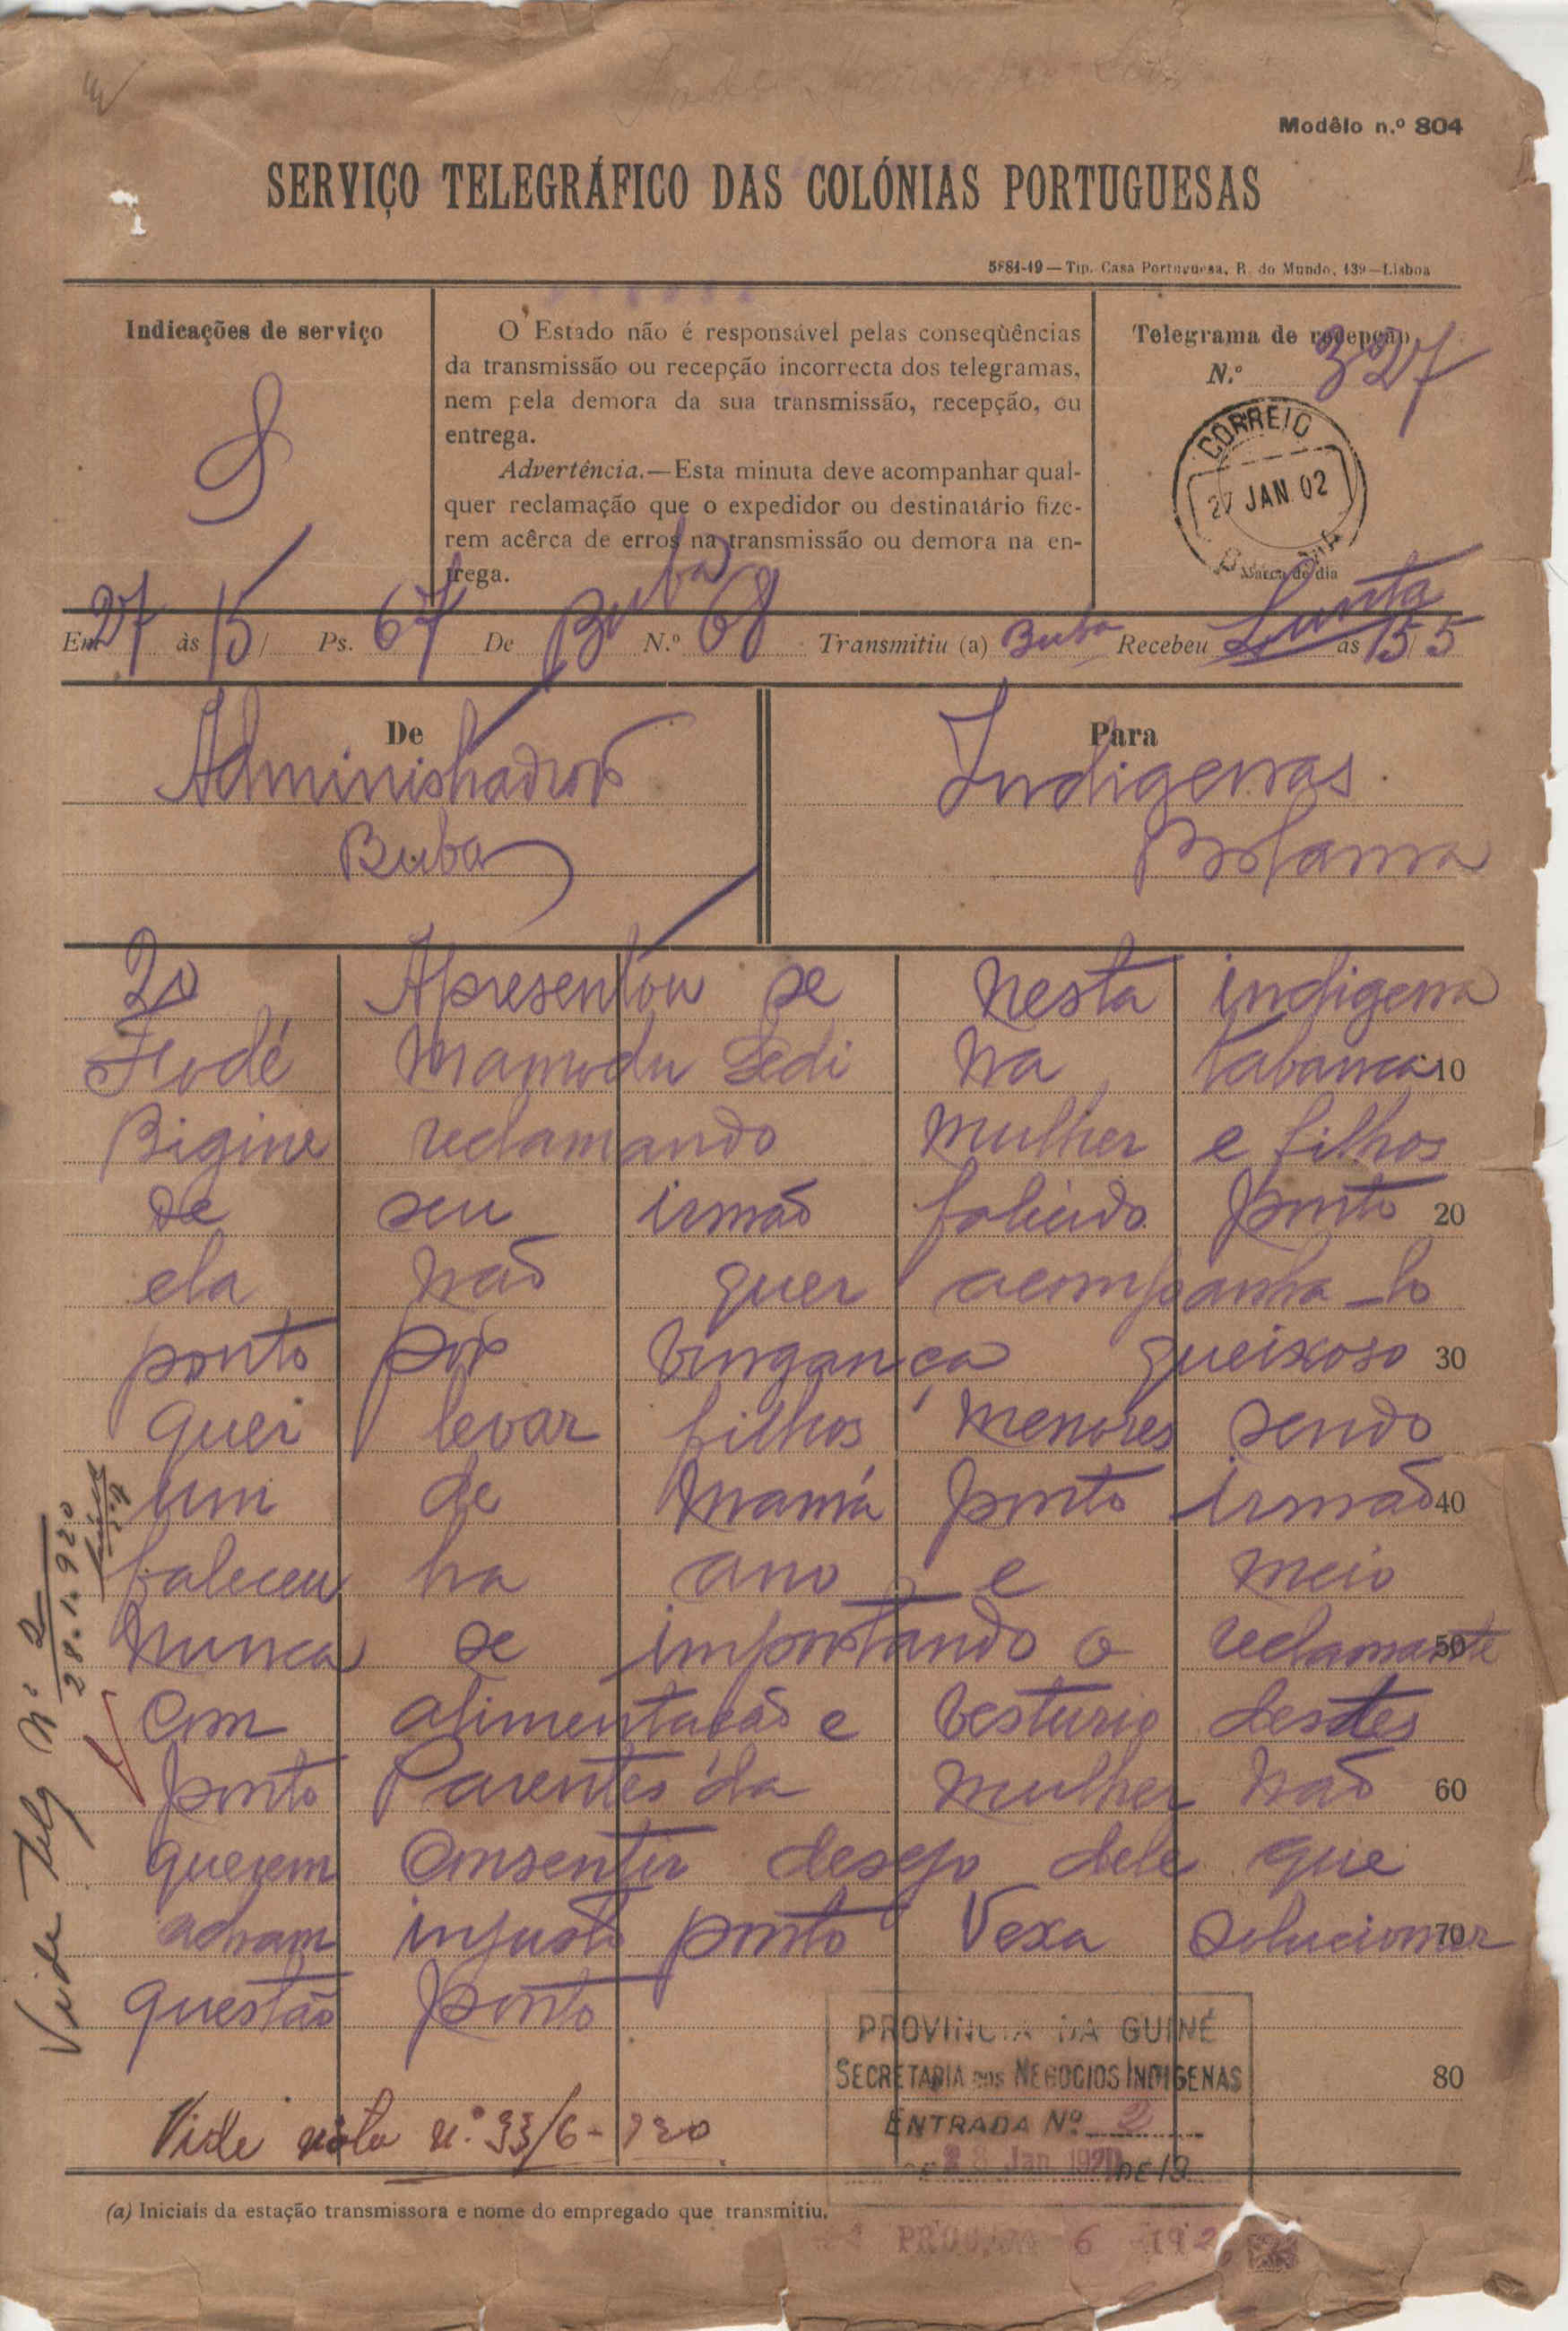 Modêlo n.º 804
SERVIÇO TELEGRÁFICO DAS COLÓNIAS PORTUGUESAS
5881-19—Tip. Casa Portuguesa, R. do Mundo, 139—Lisboa
Indicações de serviço
S
O Estado não é responsável pelas conseqùências
da transmissão ou recepção incorrecta dos telegramas,
nem pela demora da sua transmissão, recepção, ou
entrega.
Advertência.—Esta minuta deve acompanhar qual-
quer reclamação que o expedidor ou destinatário fize-
rem acêrca de erros na transmissão ou demora na en-
trega.
Telegrama de recepção
N.º 327
CORREIO
27 JAN 02
Marca de dia
Em 27 às 15/ Ps. 67 De Buba N.º 68 Transmitiu (a) Buba Recebeu às 15/5
De
Administrador
Buba
Para
Indigenas
Bolama
20 Apresentou se nesta indigena
Fodé Mamodu Sedi na tabanca 10
Bigine reclamando mulher e filhos
de seu irmão falecido ponto 20
ela não quer acompanha-lo
ponto por vingança queixoso 30
quer levar filhos menores sendo
um de mamá ponto irmão 40
faleceu ha ano e meio
nunca se importando o reclamante 50
com alimentação e vesturio destes
ponto Parentes da mulher não 60
querem consentir desejo dele que
acham injusto ponto Vexa solucionar 70
questão ponto
80
Vide Telg Nº 2
28.1.920
PROVINCIA DA GUINÉ
SECRETARIA DOS NEGOCIOS INDIGENAS
ENTRADA Nº 2
28 Jan 1920 DE 19
Vide nota n.º 33/6-920
(a) Iniciais da estação transmissora e nome do empregado que transmitiu.
6 192